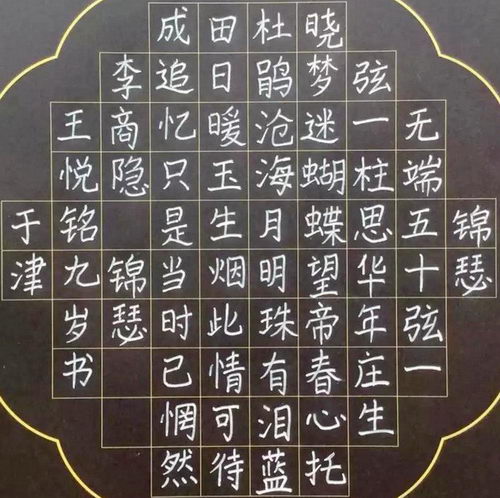 锦瑟
无端五十弦一
弦一柱思华年庄生
晓梦迷蝴蝶望帝春心托
杜鹃沧海月明珠有泪蓝
田日暖玉生烟此情可待
成追忆只是当时已惘然
李商隐 锦瑟
王悦铭九岁书
于津